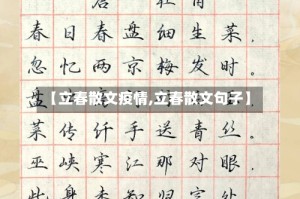 春日春盘细生菜.
忽忆两京梅发时。
盘
【立春散文疫情,立春散文句子】
菜传纤手送青丝。
巫峡寒江那对眼.
此身未知归定